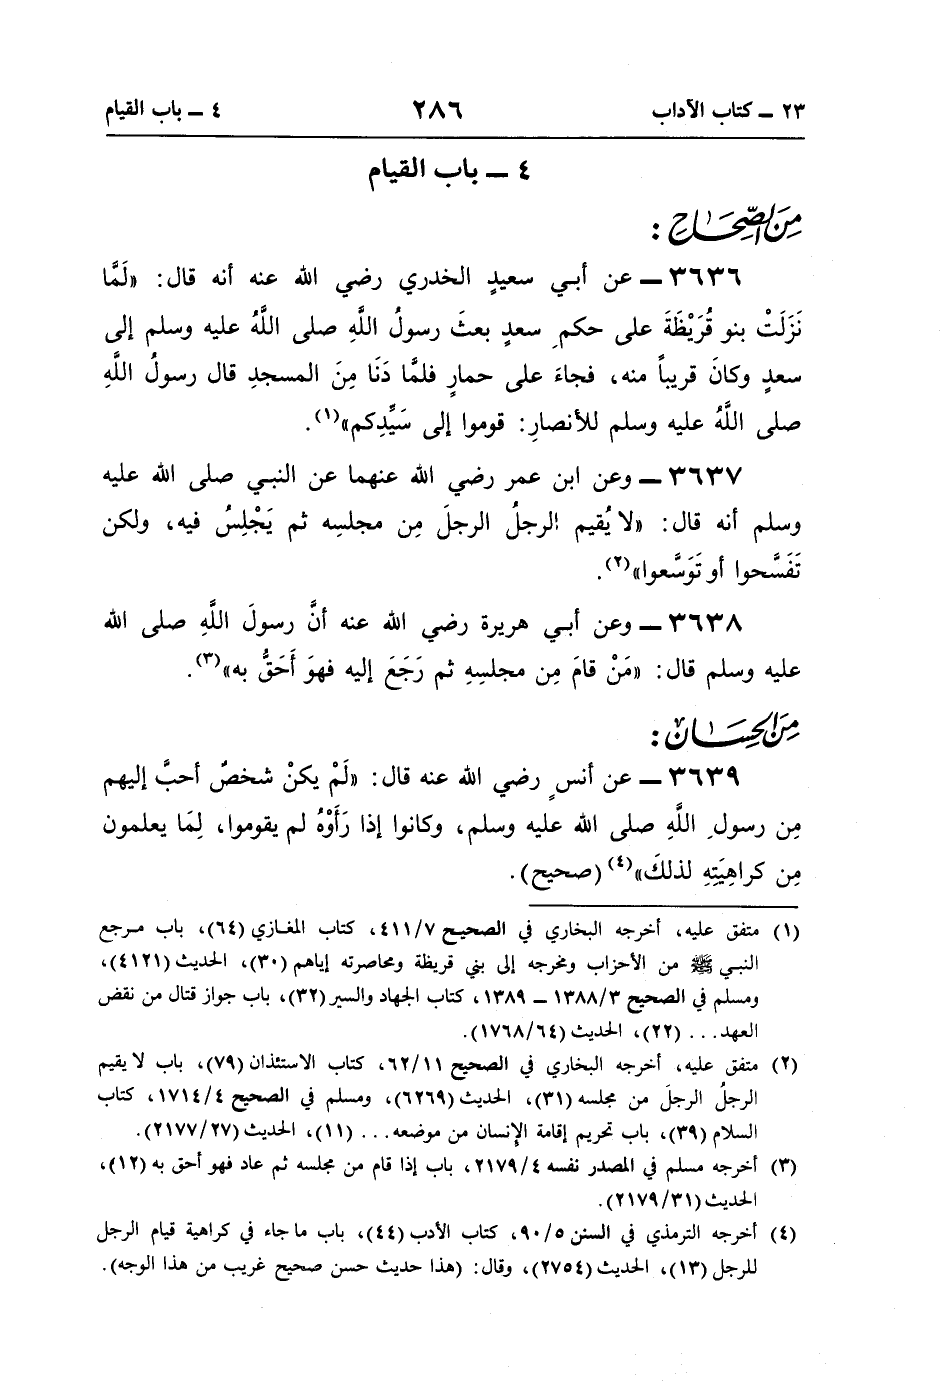 ٢٣ ــ كتاب الآداب ٢٨٦ ٤ ــ باب القيام
٤ ــ باب القيام
مِنَ الصِّحَاحِ :
٣٦٣٦ ــ عن أبي سعيدٍ الخدري رضي الله عنه أنه قال: «لَمَّا
نَزَلَتْ بنو قُرَيْظَةَ على حكمِ سعدٍ بعثَ رسولُ اللَّهِ صلى اللَّهُ عليه وسلم إلى
سعدٍ وكانَ قريباً منه، فجاءَ على حمارٍ فلمَّا دَنَا مِنَ المسجدِ قال رسولُ اللَّهِ
صلى اللَّهُ عليه وسلم للأنصارِ: قوموا إلى سَيِّدِكم»(١).
٣٦٣٧ ــ وعن ابن عمر رضي الله عنهما عن النبي صلى الله عليه
وسلم أنه قال: «لا يُقيم الرجلُ الرجلَ مِن مجلسِه ثم يَجْلِسُ فيه، ولكن
تَفَسَّحوا أو تَوَسَّعوا»(٢).
٣٦٣٨ ــ وعن أبي هريرة رضي الله عنه أنَّ رسولَ اللَّهِ صلى الله
عليه وسلم قال: «مَنْ قامَ مِن مجلسِهِ ثم رَجَعَ إليه فهوَ أَحَقُّ به»(٣).
مِنَ الحِسَانِ :
٣٦٣٩ ــ عن أنسٍ رضي الله عنه قال: «لَمْ يكنْ شخصٌ أحبَّ إليهم
مِن رسولِ اللَّهِ صلى الله عليه وسلم، وكانوا إذا رَأَوْهُ لم يقوموا، لِمَا يعلمون
مِن كراهِيَتِهِ لذلكَ»(٤) (صحيح).
(١) متفق عليه، أخرجه البخاري في الصحيح ٤١١/٧، كتاب المغازي (٦٤)، باب مرجع
النبي ﷺ من الأحزاب ومخرجه إلى بني قريظة ومحاصرته إياهم (٣٠)، الحديث (٤١٢١)،
ومسلم في الصحيح ١٣٨٨/٣ ــ ١٣٨٩، كتاب الجهاد والسير (٣٢)، باب جواز قتال من نقض
العهد... (٢٢)، الحديث (١٧٦٨/٦٤).
(٢) متفق عليه، أخرجه البخاري في الصحيح ٦٢/١١، كتاب الاستئذان (٧٩)، باب لا يقيم
الرجلُ الرجلَ من مجلسه (٣١)، الحديث (٦٢٦٩)، ومسلم في الصحيح ١٧١٤/٤، كتاب
السلام (٣٩)، باب تحريم إقامة الإنسان من موضعه... (١١)، الحديث (٢١٧٧/٢٧).
(٣) أخرجه مسلم في المصدر نفسه ٢١٧٩/٤، باب إذا قام من مجلسه ثم عاد فهو أحق به (١٢)،
الحديث (٢١٧٩/٣١).
(٤) أخرجه الترمذي في السنن ٩٠/٥، كتاب الأدب (٤٤)، باب ما جاء في كراهية قيام الرجل
للرجل (١٣)، الحديث (٢٧٥٤)، وقال: (هذا حديث حسن صحيح غريب من هذا الوجه).